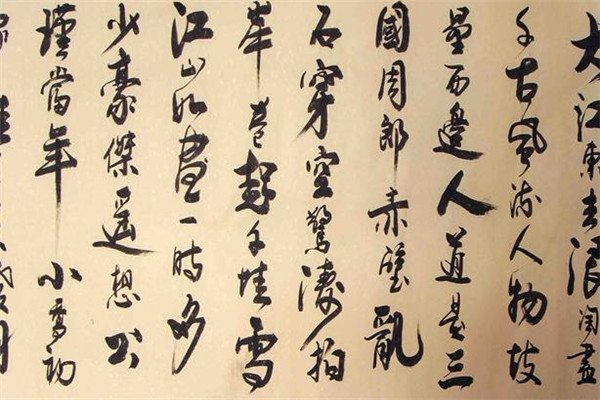 大江東去浪淘盡
千古風流人物故
壘西邊人道是三
國周郎赤壁亂
石穿空驚濤拍
岸卷起千堆雪
江山如畫一時多
少豪傑遥想公
瑾當年小喬初